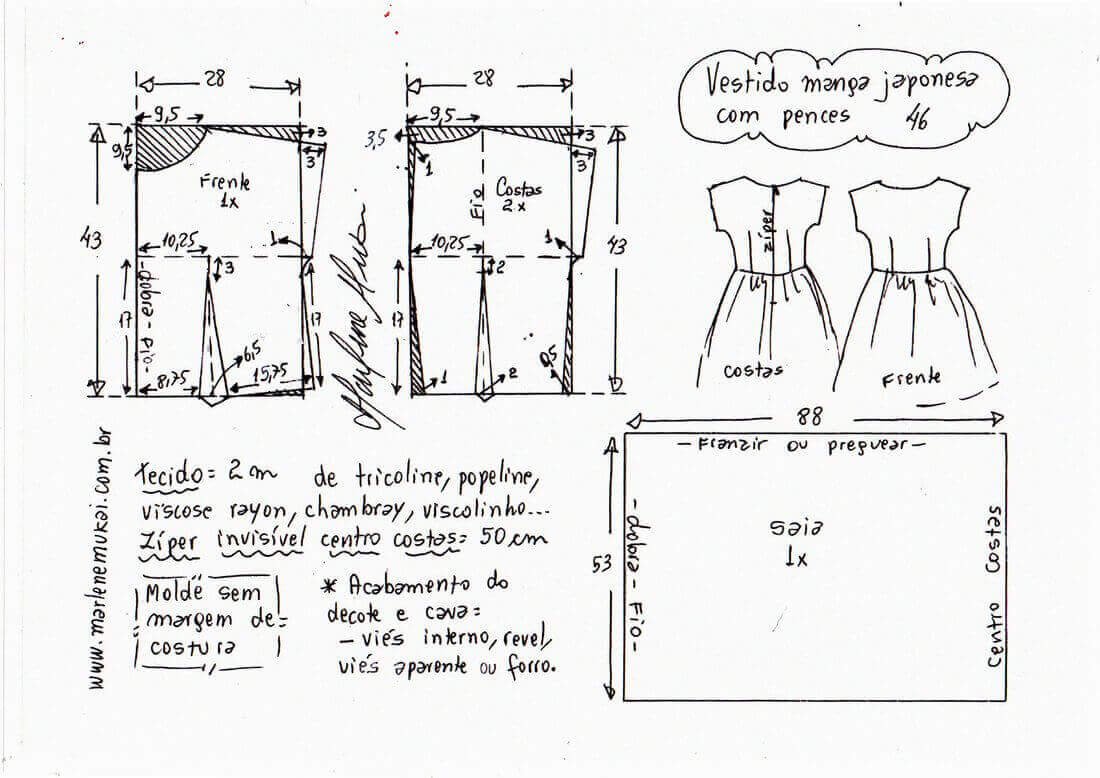 28
9,5
9,5
3
3
Frente
1x
43
10,25
1
3
17
-Fio-dobra-
17
6,5
8,75
15,75
28
9,5
3,5
3
1
3
Fio
Costas
2x
10,25
1
43
2
17
0,5
1
2
Vestido manga japonesa
com pences 46
zíper
costas
Frente
88
-Franzir ou preguear-
saia
1x
53
-dobra-Fio-
Centro Costas
www.marlenemukai.com.br
tecido= 2m de tricoline, popeline,
viscose rayon, chambray, viscolinho...
Zíper invisível centro costas= 50cm
Molde sem
margem de=
costura
* Acabamento do
decote e cava=
- viés interno, revel,
viés aparente ou forro.